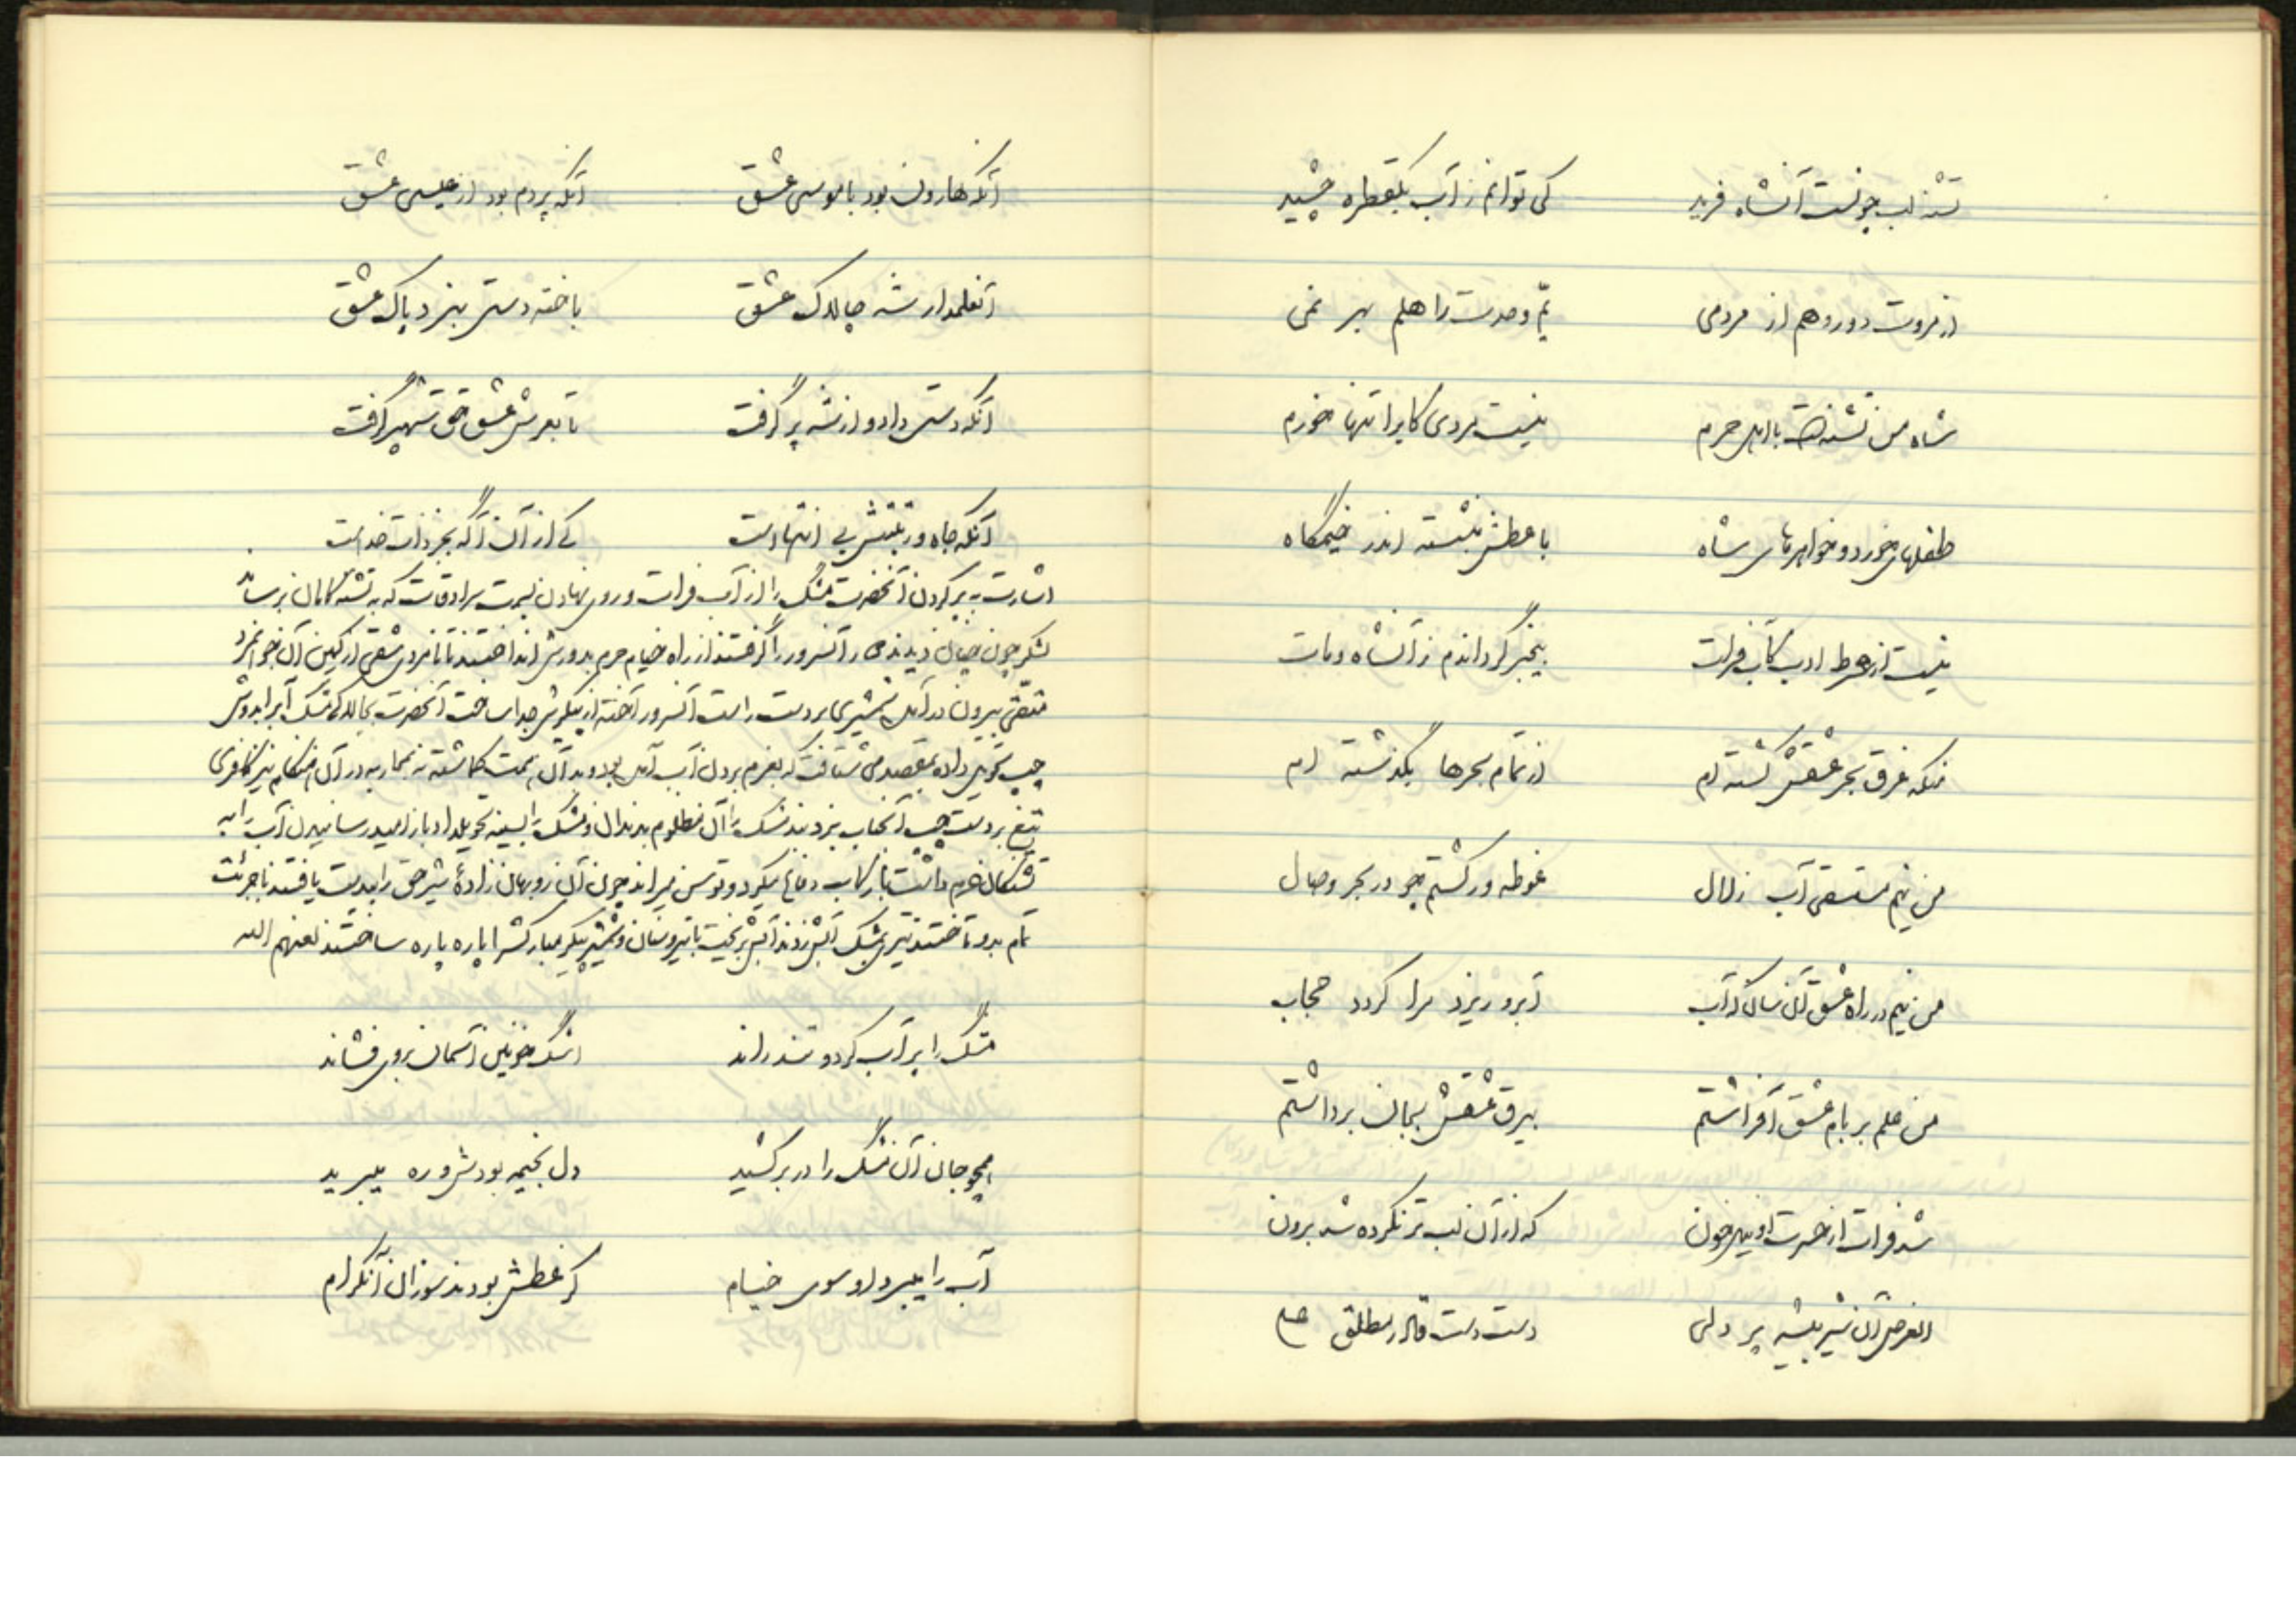 تشنه لب چونست آنشاه فرید کی توانم ز آب یکقطره چشید
از مروت دور و هم از مردمی یمّ وحدت را هلم بهر نمی
شاه من تشنه است با اهل حرم نیست مردی کابرا تنها خورم
طفلهای خورد و خواهرهای شاه با عطش بنشسته اندر خیمگاه
نیست از شرط ادب کآب فرات بیخبر گرداندم ز آنشاه و مات
منکه غرق بحر عشقش گشته ام از تمام بحرها بگذشته ام
من نیم مستسقی آب زلال غوطه ور گشتم چو در بحر وصال
من نیم در راه عشق آن سان که آب آبرو ریزد مرا گردد حجاب
من علم بر بام عشق افراشتم بیرق عشقش بجان برداشتم
شد فرات از حسرت او نهر خون که از آن لب تر نکرده شد برون
الغرض آن شیر بیشه پر دلی دست دست قادر مطلق علی
آنکه هارون بود با موسی عشق آنکه پر دم بود از عیسی عشق
آنعلمدار شه چالاک عشق باخته دستی بنزد پاک عشق
آنکه دستی داد و از شه پر گرفت تا بعرش عشق حق شهپر گرفت
آنکه جاه و رتبتش بی انتهاست کی از آن آگه بجز ذات خداست
اشارت به پر کردن آنحضرت مشک را از آب فرات و روی نهادن بسمت سرادقات که به تشنه کامان برساند
لشکر چون چنان دیدند سر راه آنسرور را گرفتند از راه خیام حرم بدورش انداختند تا نامردی شقی از کمین آن جوانمرد
متقی بیرون درآمد شمشیری بر دست راست آنسرور آخته از پیکرش جدا ساخت آنحضرت بچالاکی مشک آبرا بدوش
چپ تحویل داده بمقصد می شتافت که بعزم بردن آب آمده بود و بد آن همت گماشته نه بمحاربه در آن هنگام نیز کافری
تیغ بر دست چپ آنجناب بزد بند مشک را آن مظلوم بدندان و مشک را بسینه تحویلداد باز امید رسانیدن آب را به
تشنگان حرم داشت با رکاب دفاع میکرد و توسن میراند چون آن روبهان زادهٔ شیر حق را بیدست یافتند با جرئت
تمام بدو تاختند تیری بمشک آبش زدند آبش بریخت با تیر و سنان و شمشیر پیکر مبارکش را پاره پاره ساختند لعنهم الله
مشک را پر آب کرد و تند راند اشک خونین آسمان بروی فشاند
همچو جان آن مشک را در بر کشید دل بخیمه بودش و ره میبرید
آب را میبرد او سوی خیام کز عطش بودند سوزان آنکرام